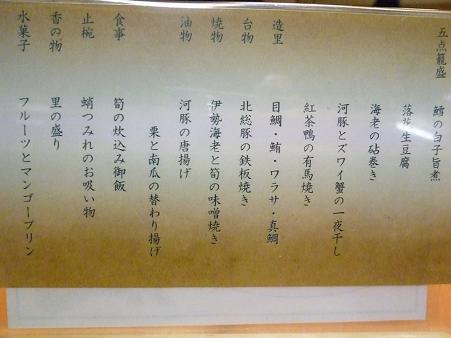 五点籠盛 鱈の白子旨煮
落花生豆腐
海老の砧巻き
河豚とズワイ蟹の一夜干し
紅茶鴨の有馬焼き
造里 目鯛・鮪・ワラサ・真鯛
台物 北総豚の鉄板焼き
焼物 伊勢海老と筍の味噌焼き
油物 河豚の唐揚げ
栗と南瓜の替わり揚げ
食事 筍の炊込み御飯
止椀 蛸つみれのお吸い物
香の物 里の盛り
水菓子 フルーツとマンゴープリン